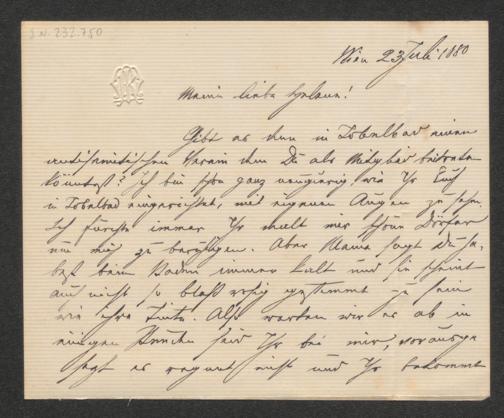 I.N. 232.750
Wien 23 Juli 1880
Meine liebe Helene!
Gibt es denn in Tobelbad einen
antisemitischen Verein dem Du als Mitglied beitreten
könntest? Ich bin schon ganz neugierig, wie Ihr Euch
in Tobelbad eingerichtet, mit eigenen Augen zu sehen.
Ich fürchte immer Ihr malt mir schöne Dörfer
um mich zu beruhigen. Aber Mama sagt Du
beim Baden immer kalt und sie scheint
auch nicht so rosig gestimmt zu sein
wie ihre Tinte. Also werden wir es ab in
einigen Stunden seid Ihr bei mir, vorausge
setzt es regnet nicht und Ihr bekommt